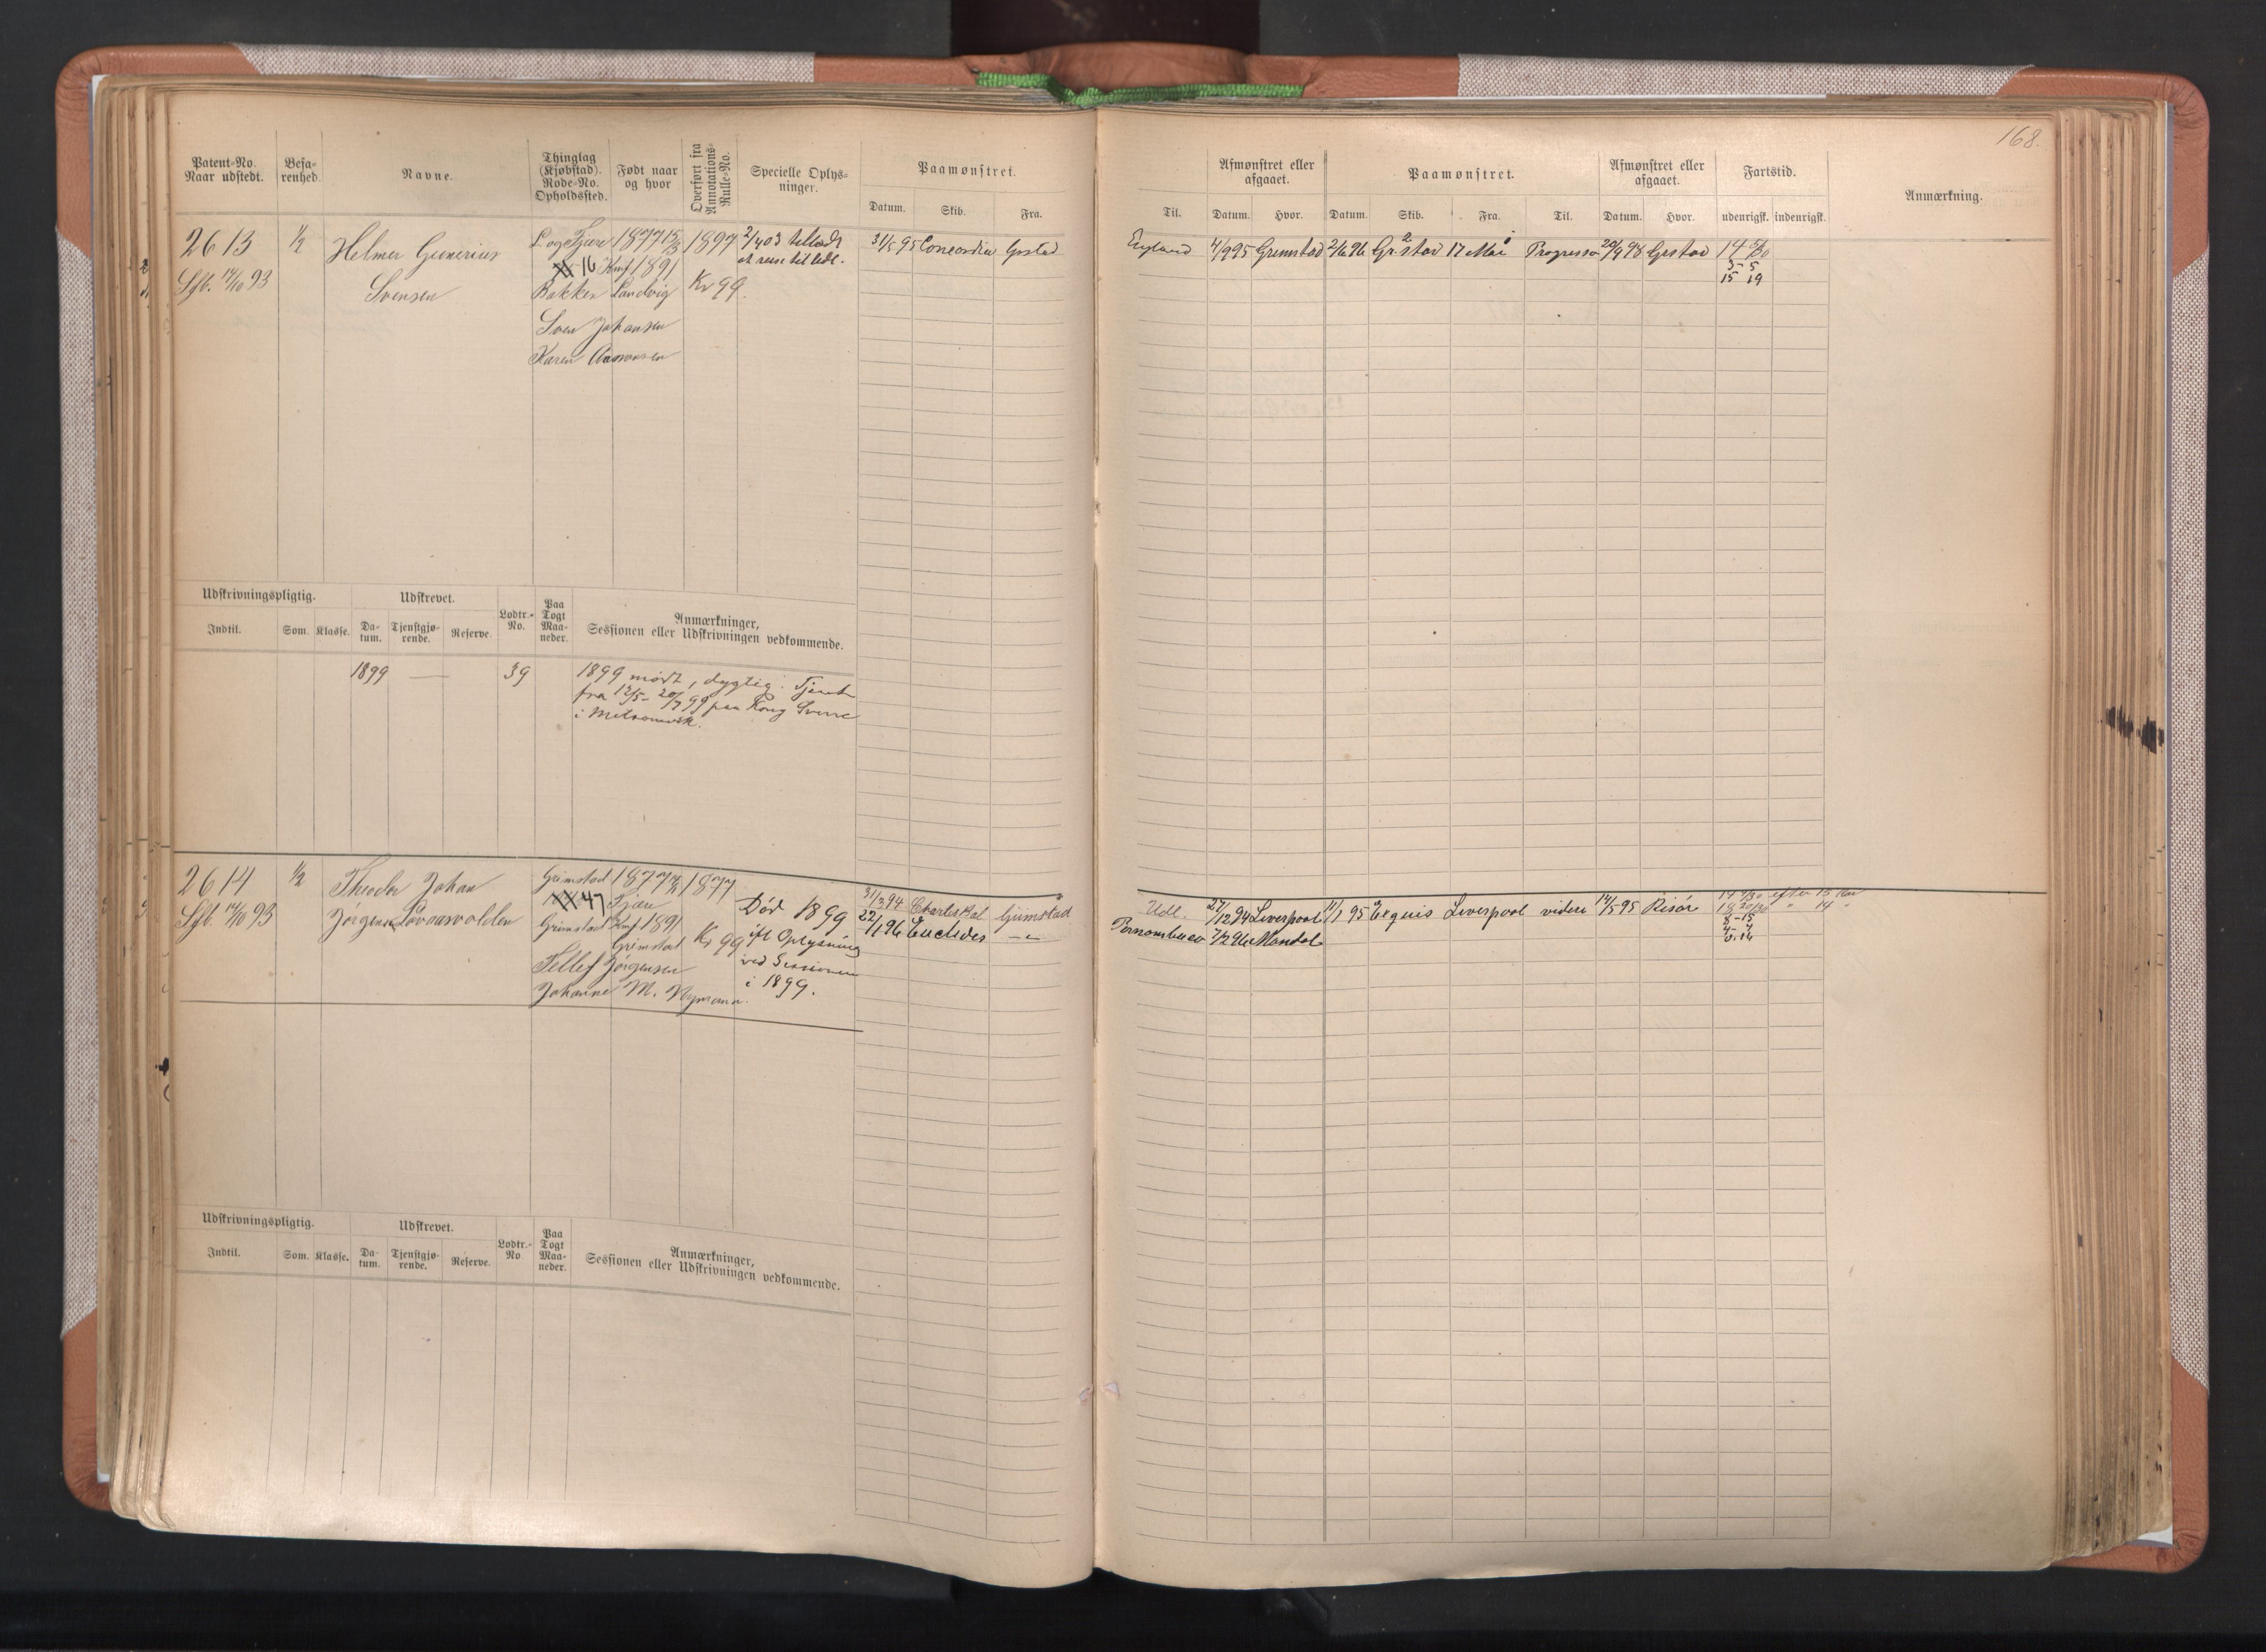 168.
Patent-No.
Naar udstedt.
Befa-
renhed.
Navne.
Thinglag
(Kjøbstad).
Rode-No.
Opholdssted.
Født naar
og hvor
Overført fra
Annotations-
Rulle-No.
Specielle Oplys-
ninger.
Paamønstret.
Datum.
Skib.
Fra.
Til.
Afmønstret eller
afgaaet.
Datum.
Hvor.
Paamønstret.
Datum.
Skib.
Fra.
Til.
Afmønstret eller
afgaaet.
Datum.
Hvor.
Fartstid.
udenrigsk.
indenrigsk.
Anmærkning.
2613
Sfb. 14/10 93
1/2
Helmer Gunerius
Svensen
L og Fjære
XX 16
Bakken
Sven Johansen
Karen Aamonsen
1877 15/3
Knf 1891
Landvig
1897
Kr 99.
2/4 03 tilladt
at reise til Udl.
31/5 95 Concordia Grstad
England 4/9 95 Grimstad 2/6 96 Grstad 17 Mai Progresso 20/9 98 Grstad
14
3 - 5
15 19
Udskrivningspligtig.
Indtil.
Som.
Klasse.
Udskrevet.
Da-
tum.
Tjenstgjø-
rende.
Reserve.
Lodtr.-
No.
Paa
Togt
Maa-
neder.
Anmærkninger,
Sessionen eller Udskrivningen vedkommende.
1899 —
39
1899 mødt, dygtig. Tjent
fra 12/5 - 20/7 99 paa Kong Sverre
2614
Sfb. 14/10 93
1/2
Theodor Johan
Jørgensen
Grimstad
XX 47
Grimstad
Tellef Jørgensen
Johanne M. Nymann.
1877
Fjære
Knf 1891
Grimstad
1877
Kr 99
Død 1899
ifl Oplysning
ved Sessionen
i 1899.
31/3 94 Charles Bal Grimstad
22/1 96 Euclides — " —
Udl. 27/12 94 Liverpool 11/1 95 Liverpool videre 14/5 95 Risør
Pernambuco 7/2 96 Mandal
8 - 15
Udskrivningspligtig.
Indtil.
Som.
Klasse.
Udskrevet.
Da-
tum.
Tjenstgjø-
rende.
Reserve.
Lodtr.-
No
Paa
Togt
Maa-
neder.
Anmærkninger,
Sessionen eller Udskrivningen vedkommende.